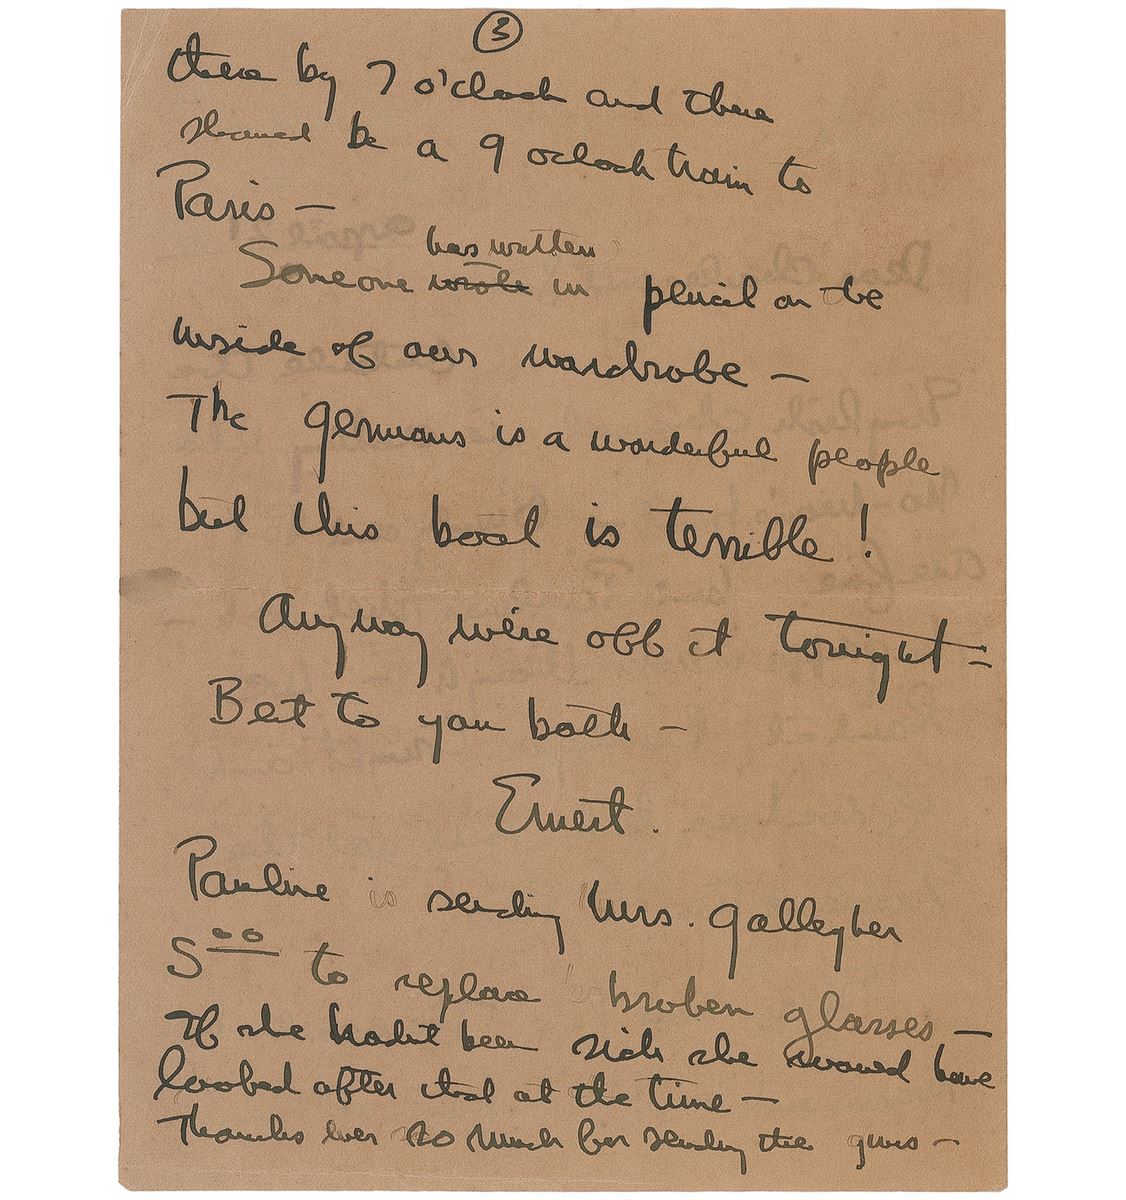 ③
there by 7 o'clock and there
should be a 9 oclock train to
Paris —
has written
Someone wrote in pencil on the
inside of our wardrobe —
The Germans is a wonderful people
but this boat is terrible!
Anyway we're off it tonight —
Best to you both —
Ernest.
Pauline is sending Mrs. Gallegher
5⁰⁰ to replace broken glasses —
If she hadnt been sick she would have
looked after that at the time —
Thanks ever so much for sending the guns —